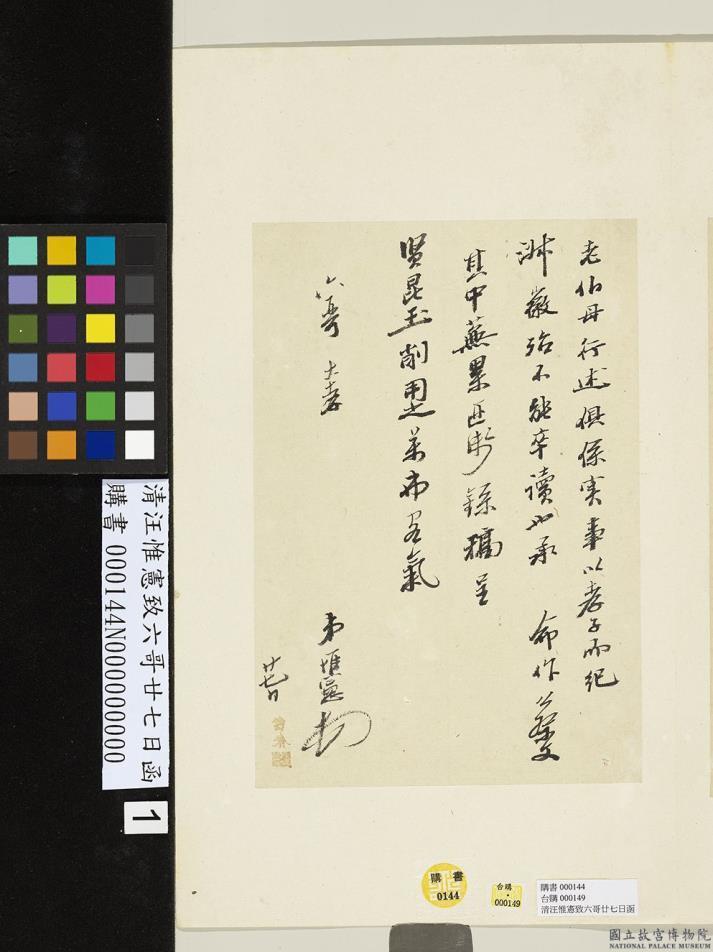 老伯母行述俱係実事以孝子而紀
淋嶶殆不能卒讀以承 命作
其中蕪累匝附錄稿呈
賢昆玉削墨弟希客氣
六哥 大孝
弟惟憲
廿七日
清汪惟憲致六哥廿七日函
購書 000144N000000000
1
購書
0144
台購
000149
購書 000144
台購 000149
清汪惟憲致六哥廿七日函
國立故宮博物院
NATIONAL PALACE MUSEUM